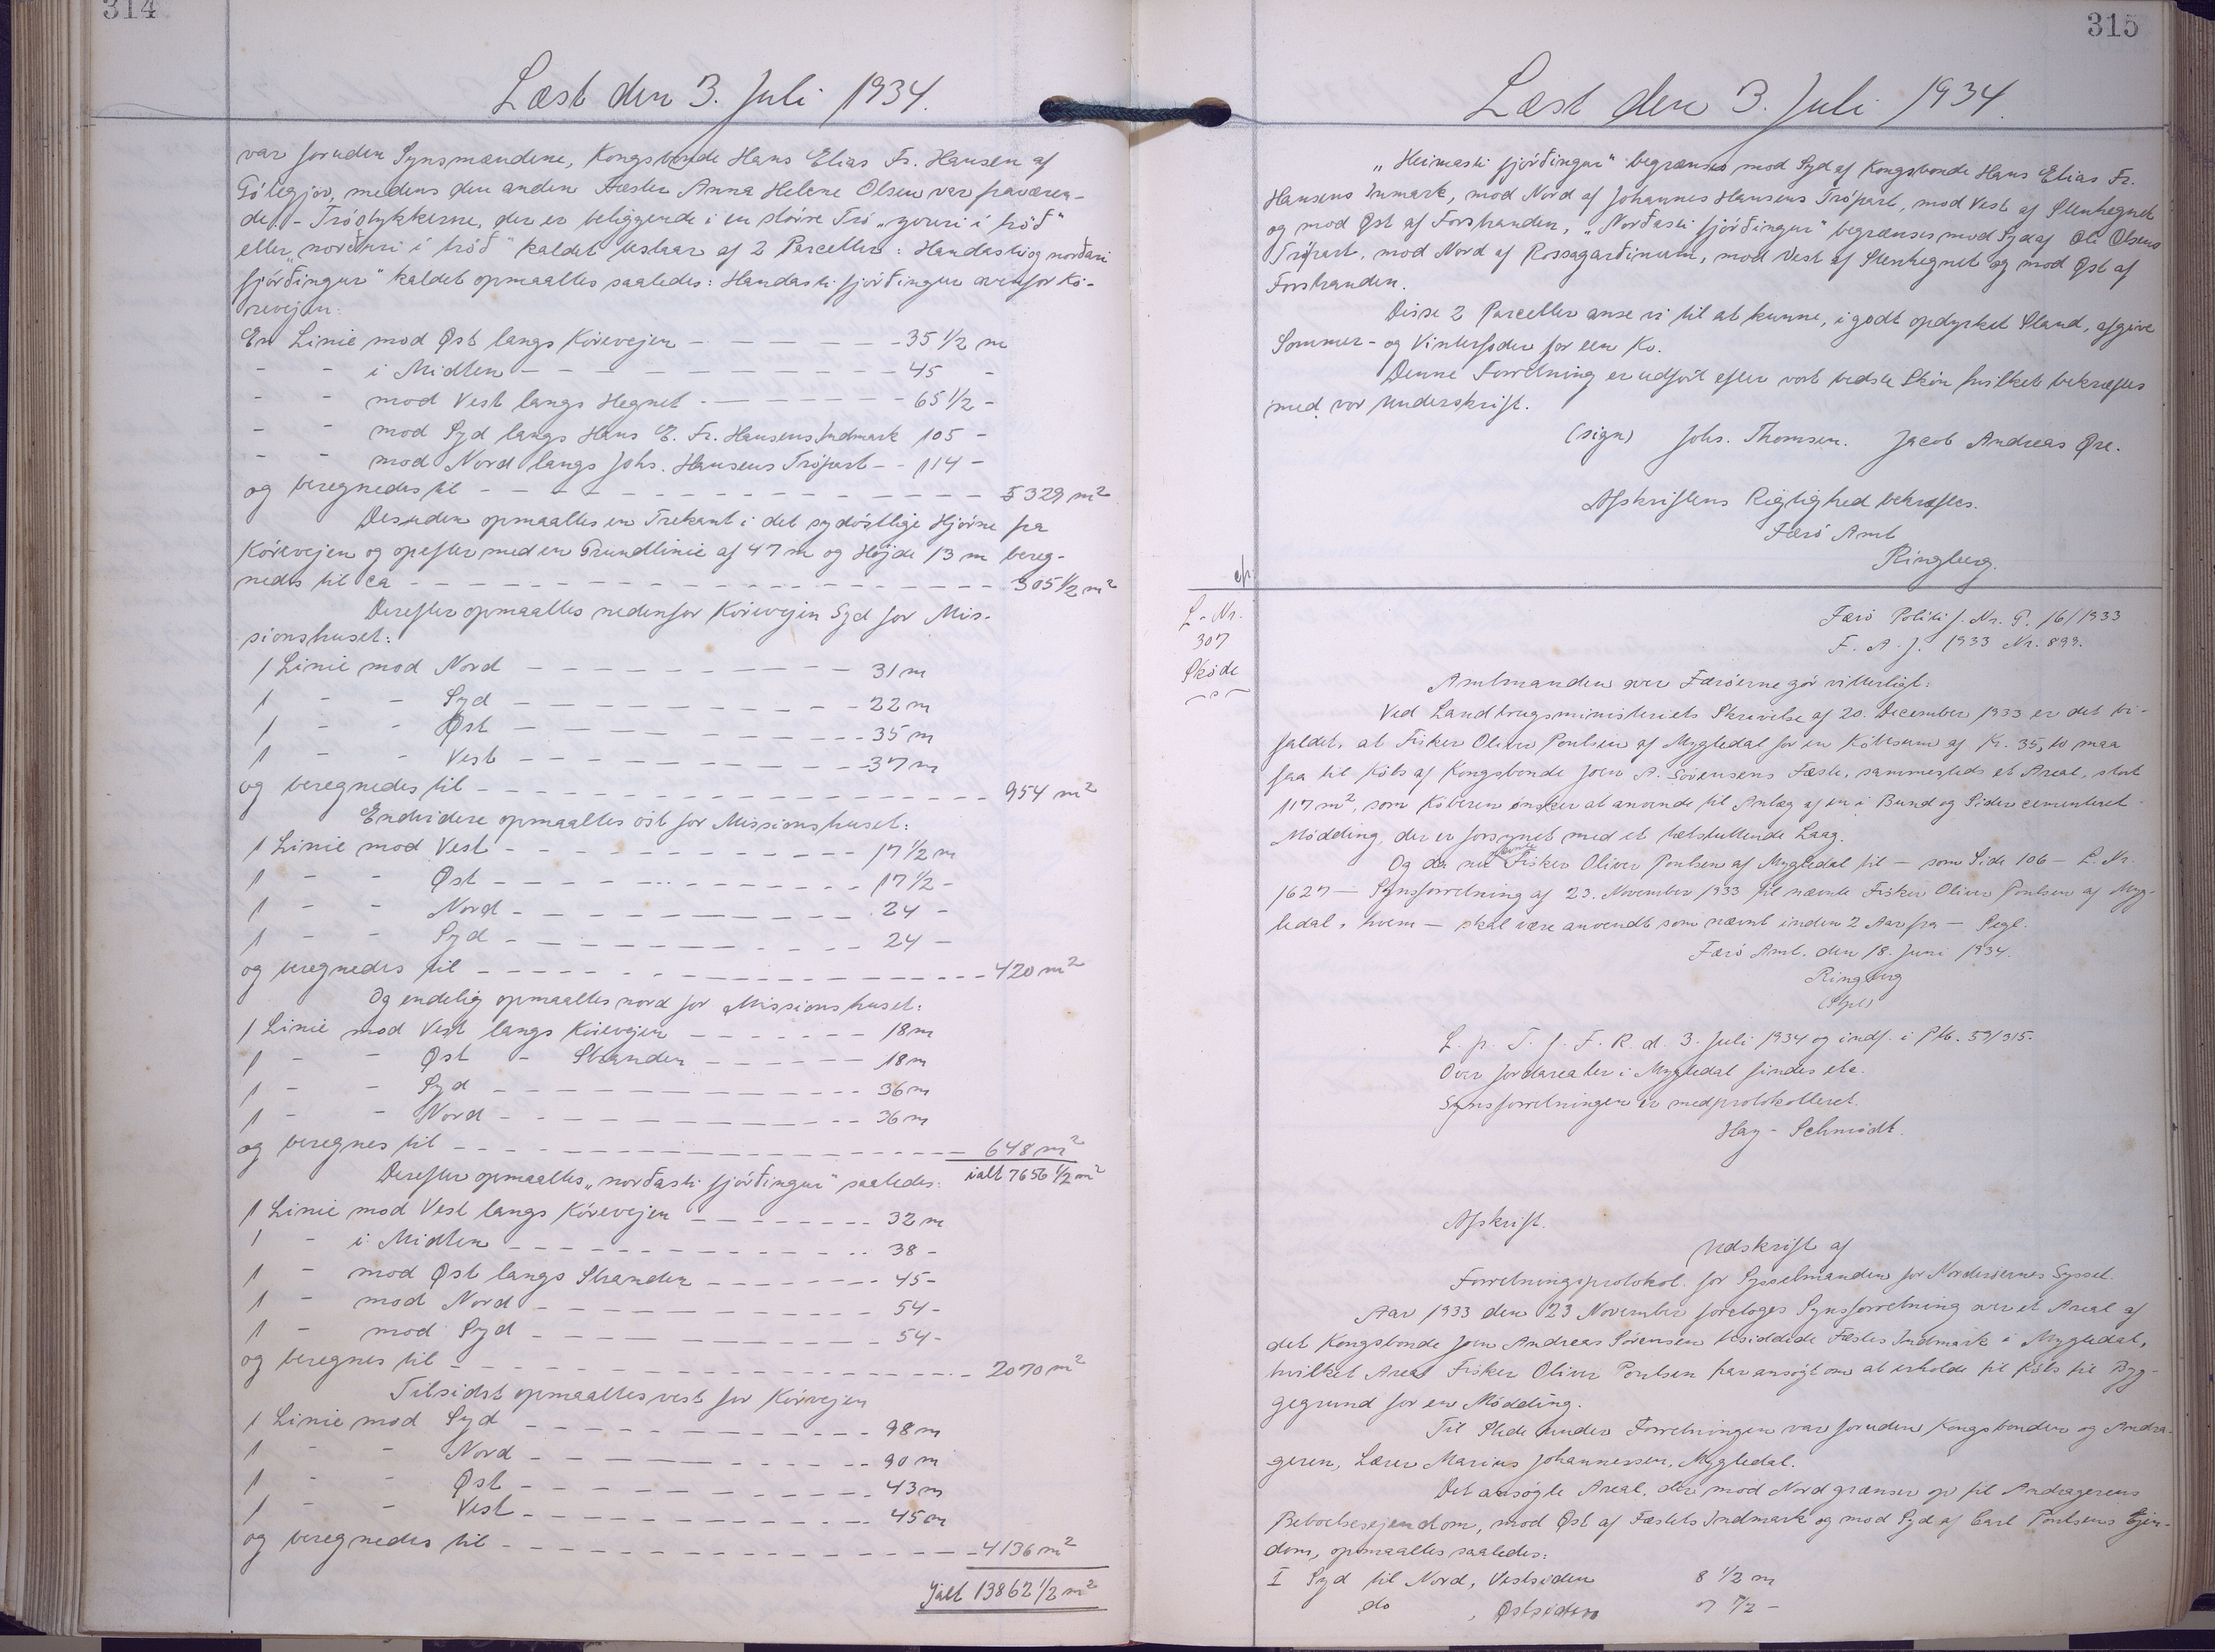 314
Læst den 3. Juli 1934.
var foruden Synsmændene, Kongsbonde Hans Elias Fr. Hansen af
Gótegjov, medens den anden Fæster Anna Helene Olsen var fraværen-
de. - Tróstykkerne, der er beliggende i en større Tró „
eller „norduri i tróð" kaldet bestaar af 2 Parceller: Handasti og norðari
fjórðingur" kaldet opmaaltes saaledes: Handasti fjórðingur ovenfor Kö-
revejen:
En Linie mod Øst langs Körevejen - - - - - 35 1/2 m
- - i Midten - - - - - - - - - 45 -
- - mod Vest langs Hegnet - - - - - - 65 1/2 -
- - mod Syd langs Hans E. Fr. Hansens Indmark 105 -
- - mod Nord langs Johs. Hansens Tröpart - - 114 -
og beregnedes til - - - - - - - - - - - - - - 5329 m²
Desuden opmaaltes en Trekant i det sydöstlige Hjörne fra
Körevejen og opefter med en Grundlinie af 47 m og Højde 13 m bereg-
nedes til ca - - - - - - - - - - - - - - - - 305 1/2 m²
Derefter opmaaltes nedenfor Körevejen Syd for Mis-
sionshuset:
1 Linie mod Nord - - - - - - - - - 31 m
1 - - Syd - - - - - - - - - - 22 m
1 - - Øst - - - - - - - - - - 35 m
1 - - Vest - - - - - - - - - - 37 m
og beregnedes til - - - - - - - - - - - - - - 954 m²
Endvidere opmaaltes öst for Missionshuset:
1 Linie mod Vest - - - - - - - - - 17 1/2 m
1 - - Øst - - - - - - - - - - 17 1/2 -
1 - - Nord - - - - - - - - - - 24 -
1 - - Syd - - - - - - - - - - 24 -
og beregnedes til - - - - - - - - - - - - - - 420 m²
Og endelig opmaaltes nord for Missionshuset:
1 Linie mod Vest langs Körevejen - - - - - - 18 m
1 - - Øst - Stranden - - - - - - 18 m
1 - - Syd - - - - - - - - - - 36 m
1 - - Nord - - - - - - - - - - 36 m
og beregnes til - - - - - - - - - - - - - - 648 m²
Derefter opmaaltes „norðasti fjórðingur" saaledes: ialt 7656 1/2 m²
1 Linie mod Vest langs Körevejen - - - - - - 32 m
1 - i Midten - - - - - - - - - - 38 -
1 - mod Øst langs Stranden - - - - - - 45 -
1 - mod Nord - - - - - - - - - - 54 -
1 - mod Syd - - - - - - - - - - 54 -
og beregnes til - - - - - - - - - - - - - - 2070 m²
Tilsidst opmaaltes vest for Körvejen
1 Linie mod Syd - - - - - - - - - - 98 m
1 - - Nord - - - - - - - - - - 90 m
1 - - Øst - - - - - - - - - - 43 m
1 - - Vest - - - - - - - - - - 45 m
og beregnedes til - - - - - - - - - - - - - - 4136 m²
Ialt 13862 1/2 m²
315
Læst den 3. Juli 1934.
„Heimasti fjórðingur" begrænses mod Syd af Kongsbonde Hans Elias Fr.
Hansens Inmark, mod Nord af Johannes Hansens Trópart, mod Vest af Stenhegnet
og mod Øst af Forstranden, „Norðasti fjórðingur" begrænses mod Syd af Oli Olsens
Trópart, mod Nord af Rossagarðinum, mod Vest af Stenhegnet og mod Øst af
Forstranden.
Disse 2 Parceller anse vi til at kunne, i godt opdyrket Stand, afgive
Sommer- og Vinterfoder for een Ko.
Denne Forretning er udfört efter vort bedste Skön hvilket bekræftes
med vor Underskrift.
(sign) Johs. Thomsen. Jacob Andreas Øre.
Afskriftens Rigtighed bekræftes.
Færö Amt
Ringberg.
L-Nr.
307
Sköde
Færö Politi J. Nr. P. 16/1933
F. A. J. 1933 Nr. 899.
Amtmanden over Færöerne gör vitterligt:
Ved Landbrugsministeriets Skrivelse af 20. December 1933 er det bi-
faldet, at Fisker Oliver Poulsen af Mygledal for en Köbesum af Kr. 35,10 maa
faa til Köbs af Kongsbonde Joen A. Sörensens Fæste, sammesteds et Areal, stort
117 m², som Köberen önsker at anvende til Anlæg af en i Bund og Sider cementeret
Mödding, der er forsynet med et tætsluttende Laag.
Og da nu nævnte Fisker Oliver Poulsen af Mygledal til - som Side 106 - L. Nr.
1627 - Synsforretning af 23. November 1933 til nævnte Fisker Oliver Poulsen af Myg-
ledal, hvem - skal være anvendt som nævnt inden 2 Aar fra - Segl.
Færö Amt, den 18. Juni 1934.
Ringberg
L. p. T. f. F. R. d. 3. Juli 1934 og indf. i Ptk. 59/315.
Over Jordarealer i Mygledal findes etc.
Synsforretningen er medprotokolleret.
Hay-Schmidt.
Afskrift.
Udskrift af
Forretningsprotokol for Sysselmanden for Norderöernes Syssel.
Aar 1933 den 23 November foretoges Synsforretning over et Areal af
det Kongsbonde Joen Andreas Sörensen besiddede Fæstes Indmark i Mygledal,
hvilket Areal Fisker Oliver Poulsen har ansögt om at erholde til Köbs til Byg-
gegrund for en Mödding.
Til Stede under Forretningen var foruden Kongsbonden og Andra-
geren, Lærer Marius Johannessen, Mygledal.
Det ansögte Areal, der mod Nord grænser op til Andragerens
Beboelsesejendom, mod Øst af Fæstets Indmark og mod Syd af Carl Poulsens Ejen-
dom, opmaaltes saaledes:
I Syd til Nord, Vestsiden 8 1/2 m
do , Østsiden 7 1/2 -